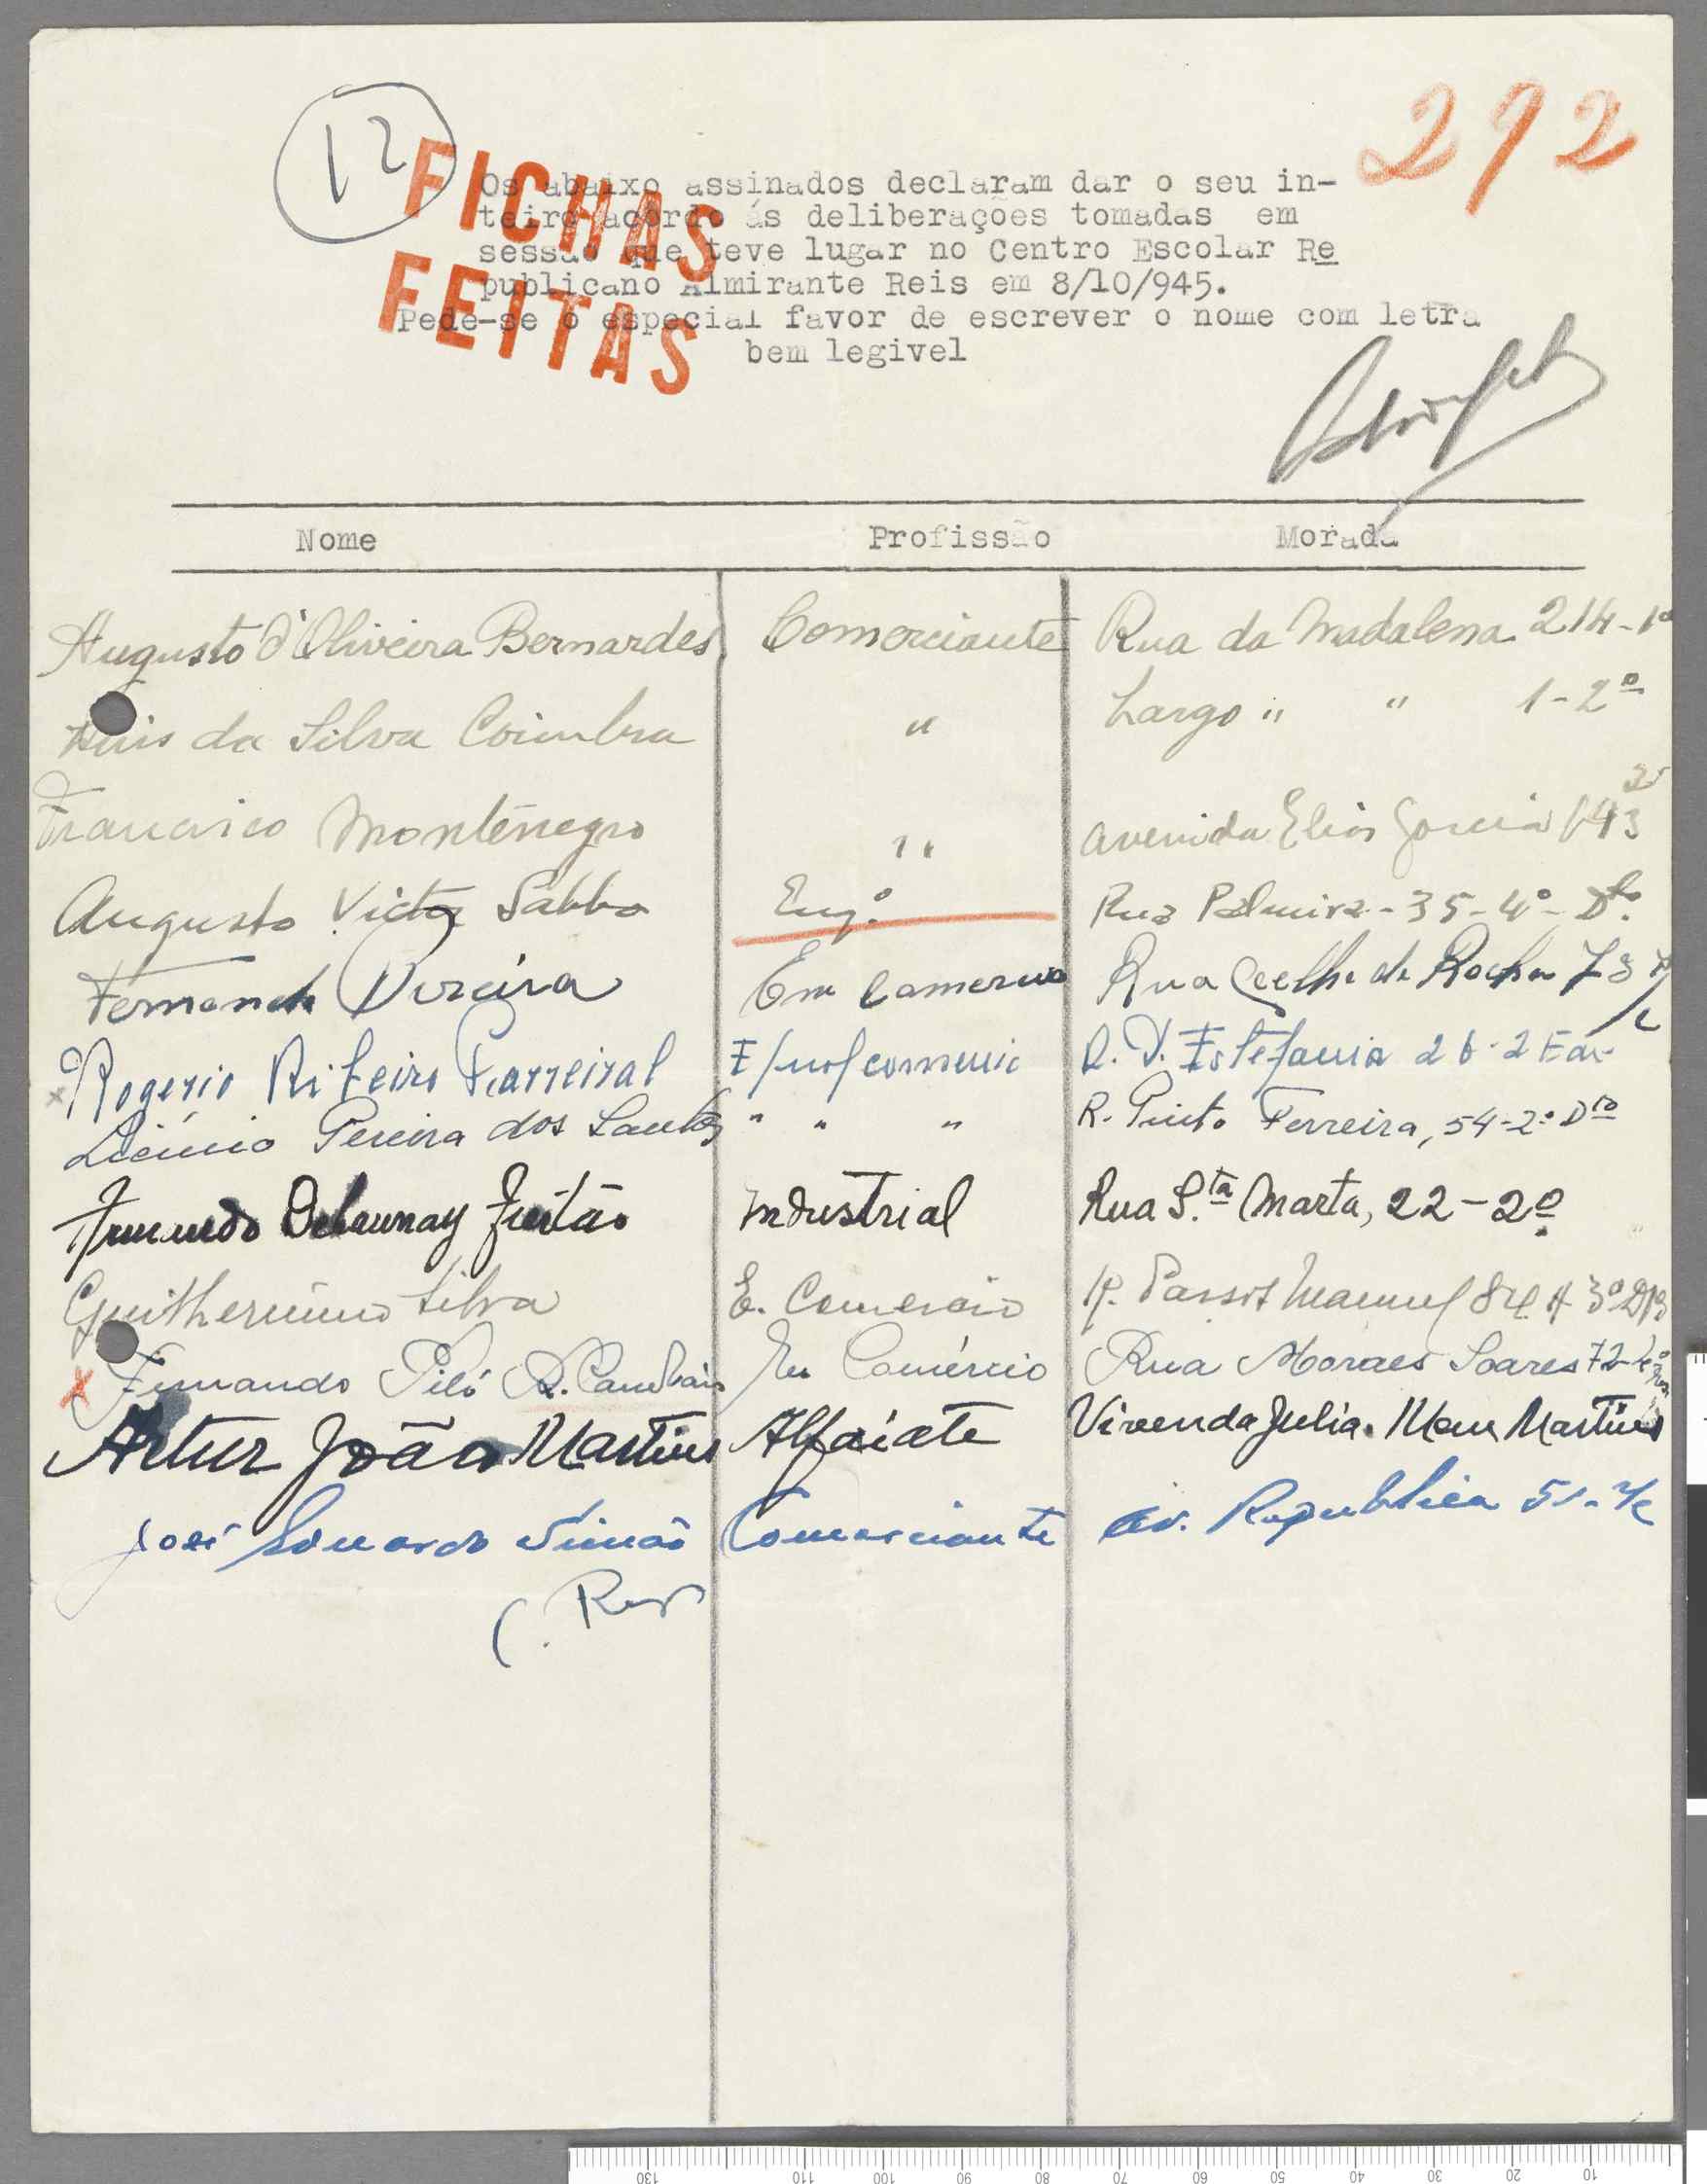 12
292
FICHAS
FEITAS
Os abaixo assinados declaram dar o seu in-
teiro acordo ás deliberações tomadas em
sessão que teve lugar no Centro Escolar Re
publicano Almirante Reis em 8/10/945.
Pede-se o especial favor de escrever o nome com letra
bem legivel
Nome Profissão Morada
Augusto d'Oliveira Bernardes Comerciante Rua da Madalena 214-1º
Luis da Silva Coimbra " Largo " " 1-2º
Francisco Montenegro " Avenida Elias Garcia
Augusto Victor Sabbo Engº. Rua Palmira-35-4º-Dto.
Fernando Pereira Em Comercio Rua Coelho da Rocha
Rogerio Ribeiro Carreiral comercio R. D. Estefania 26-2
Licinio Pereira dos Santos " " " R. Pinto Ferreira, 54-2º Dto
Armando Delaunay Freitão Industrial Rua S.ta Marta, 22-2º
Guilhermino Silva E. Comercio R. Passos Manuel
Fernando Piló Em Comércio Rua Moraes Soares 72
Artur João Martins Alfaiate Vivenda Julia. Mem Martins
José Simão Comerciante Av. Republica 51-r/c